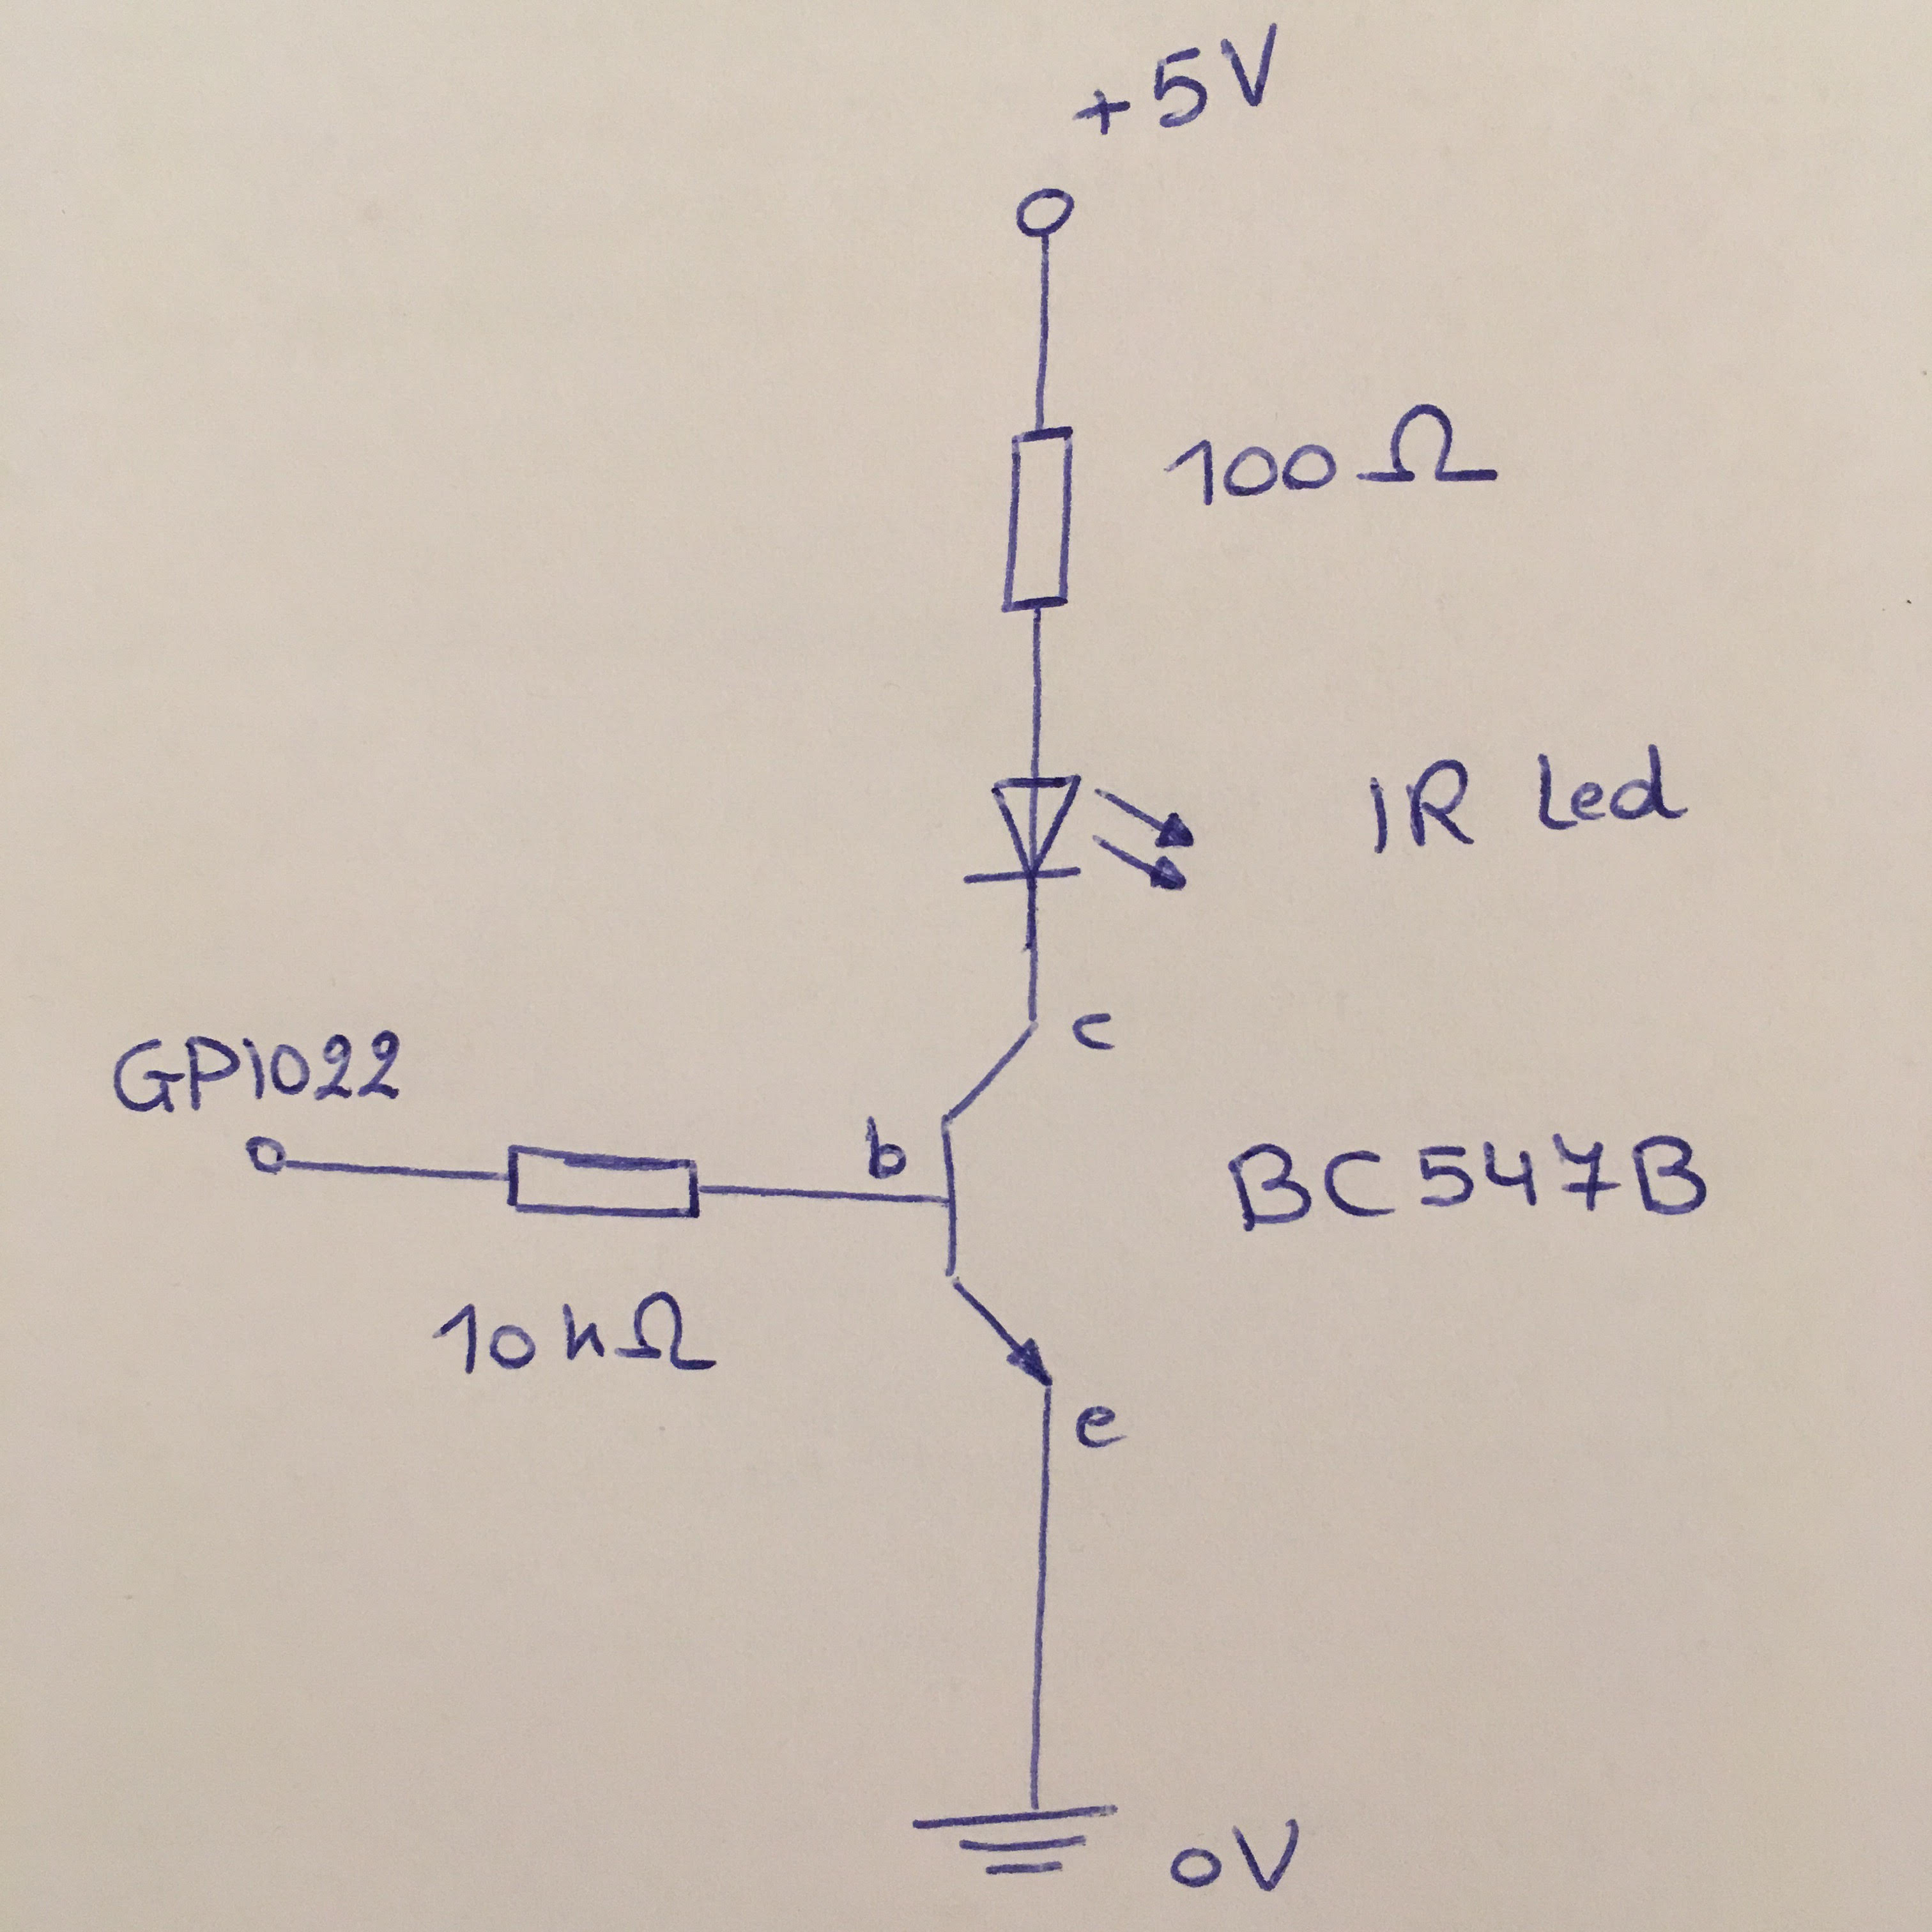 +5V
100Ω
IR Led
c
GPIO22
b
BC547B
10kΩ
e
0V